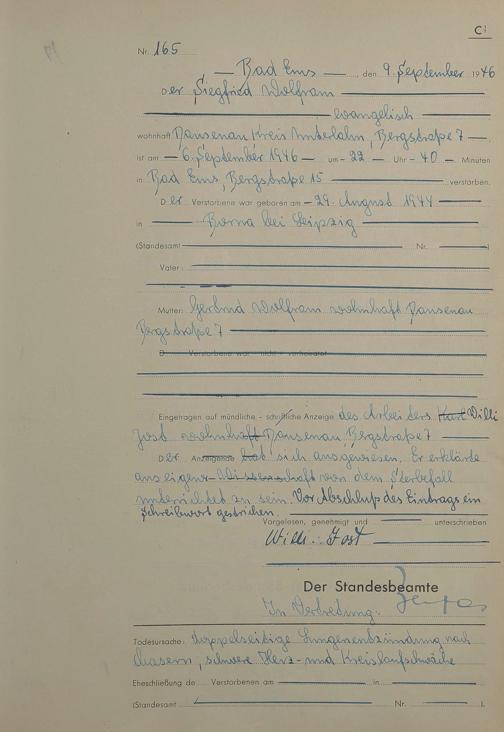 C
Nr. 165
Bad Ems, den 9. September 1946
Der Siegfried Wolfram
evangelisch
wohnhaft Dausenau Kreis Unterlahn, Bergstraße 7
ist am 6. September 1946 um 22 Uhr 40 Minuten
in Bad Ems, Bergstraße 15 verstorben.
Der Verstorbene war geboren am 29. August 1944
in Borna bei Leipzig
(Standesamt Nr. )
Vater:
Mutter: Wolfram wohnhaft Dausenau
Bergstraße 7
D Verstorbene war nicht verheiratet
Eingetragen auf mündliche - schriftliche Anzeige des Arbeiters Kurt Willi
Jost wohnhaft Dausenau, Bergstraße 7
Der Anzeigende hat sich ausgewiesen. Er erklärte
aus eigener Wissenschaft von dem Sterbefall
unterrichtet zu sein. Vor Abschluß des Eintrags ein
Schreibwort gestrichen.
Vorgelesen, genehmigt und unterschrieben
Willi Jost
Der Standesbeamte
In Vertretung:
Todesursache: doppelseitige Lungenentzündung nach
Masern, schwere Herz- und Kreislaufschwäche
Eheschließung de Verstorbenen am in
(Standesamt Nr. ).